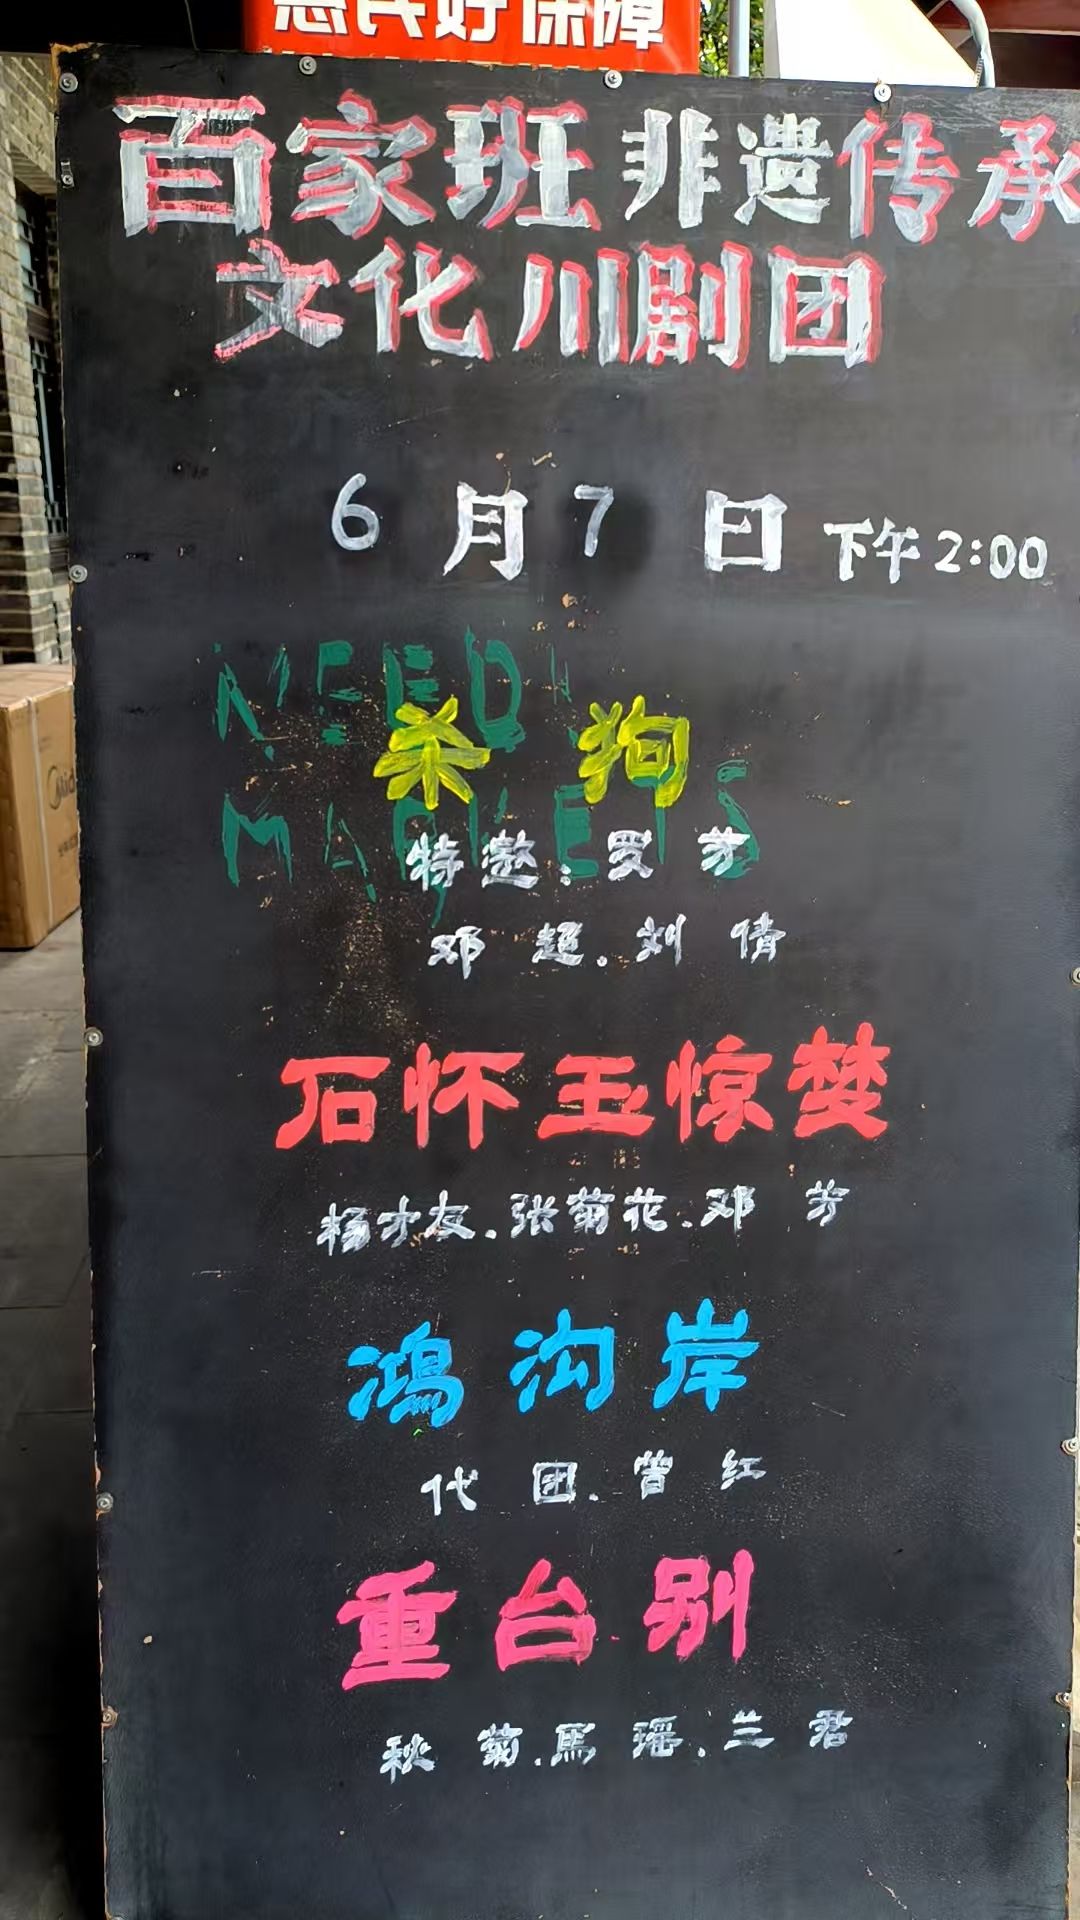 惠民好保障
百家班非遗传承
文化川剧团
6月7日 下午2:00
NEED
MARKETS
杀狗
特邀:罗芳
邓超.刘倩
石怀玉惊梦
杨才友.张菊花.邓芳
鸿沟岸
代团.曾红
重台别
秋菊.馬瑶.兰君
Mid